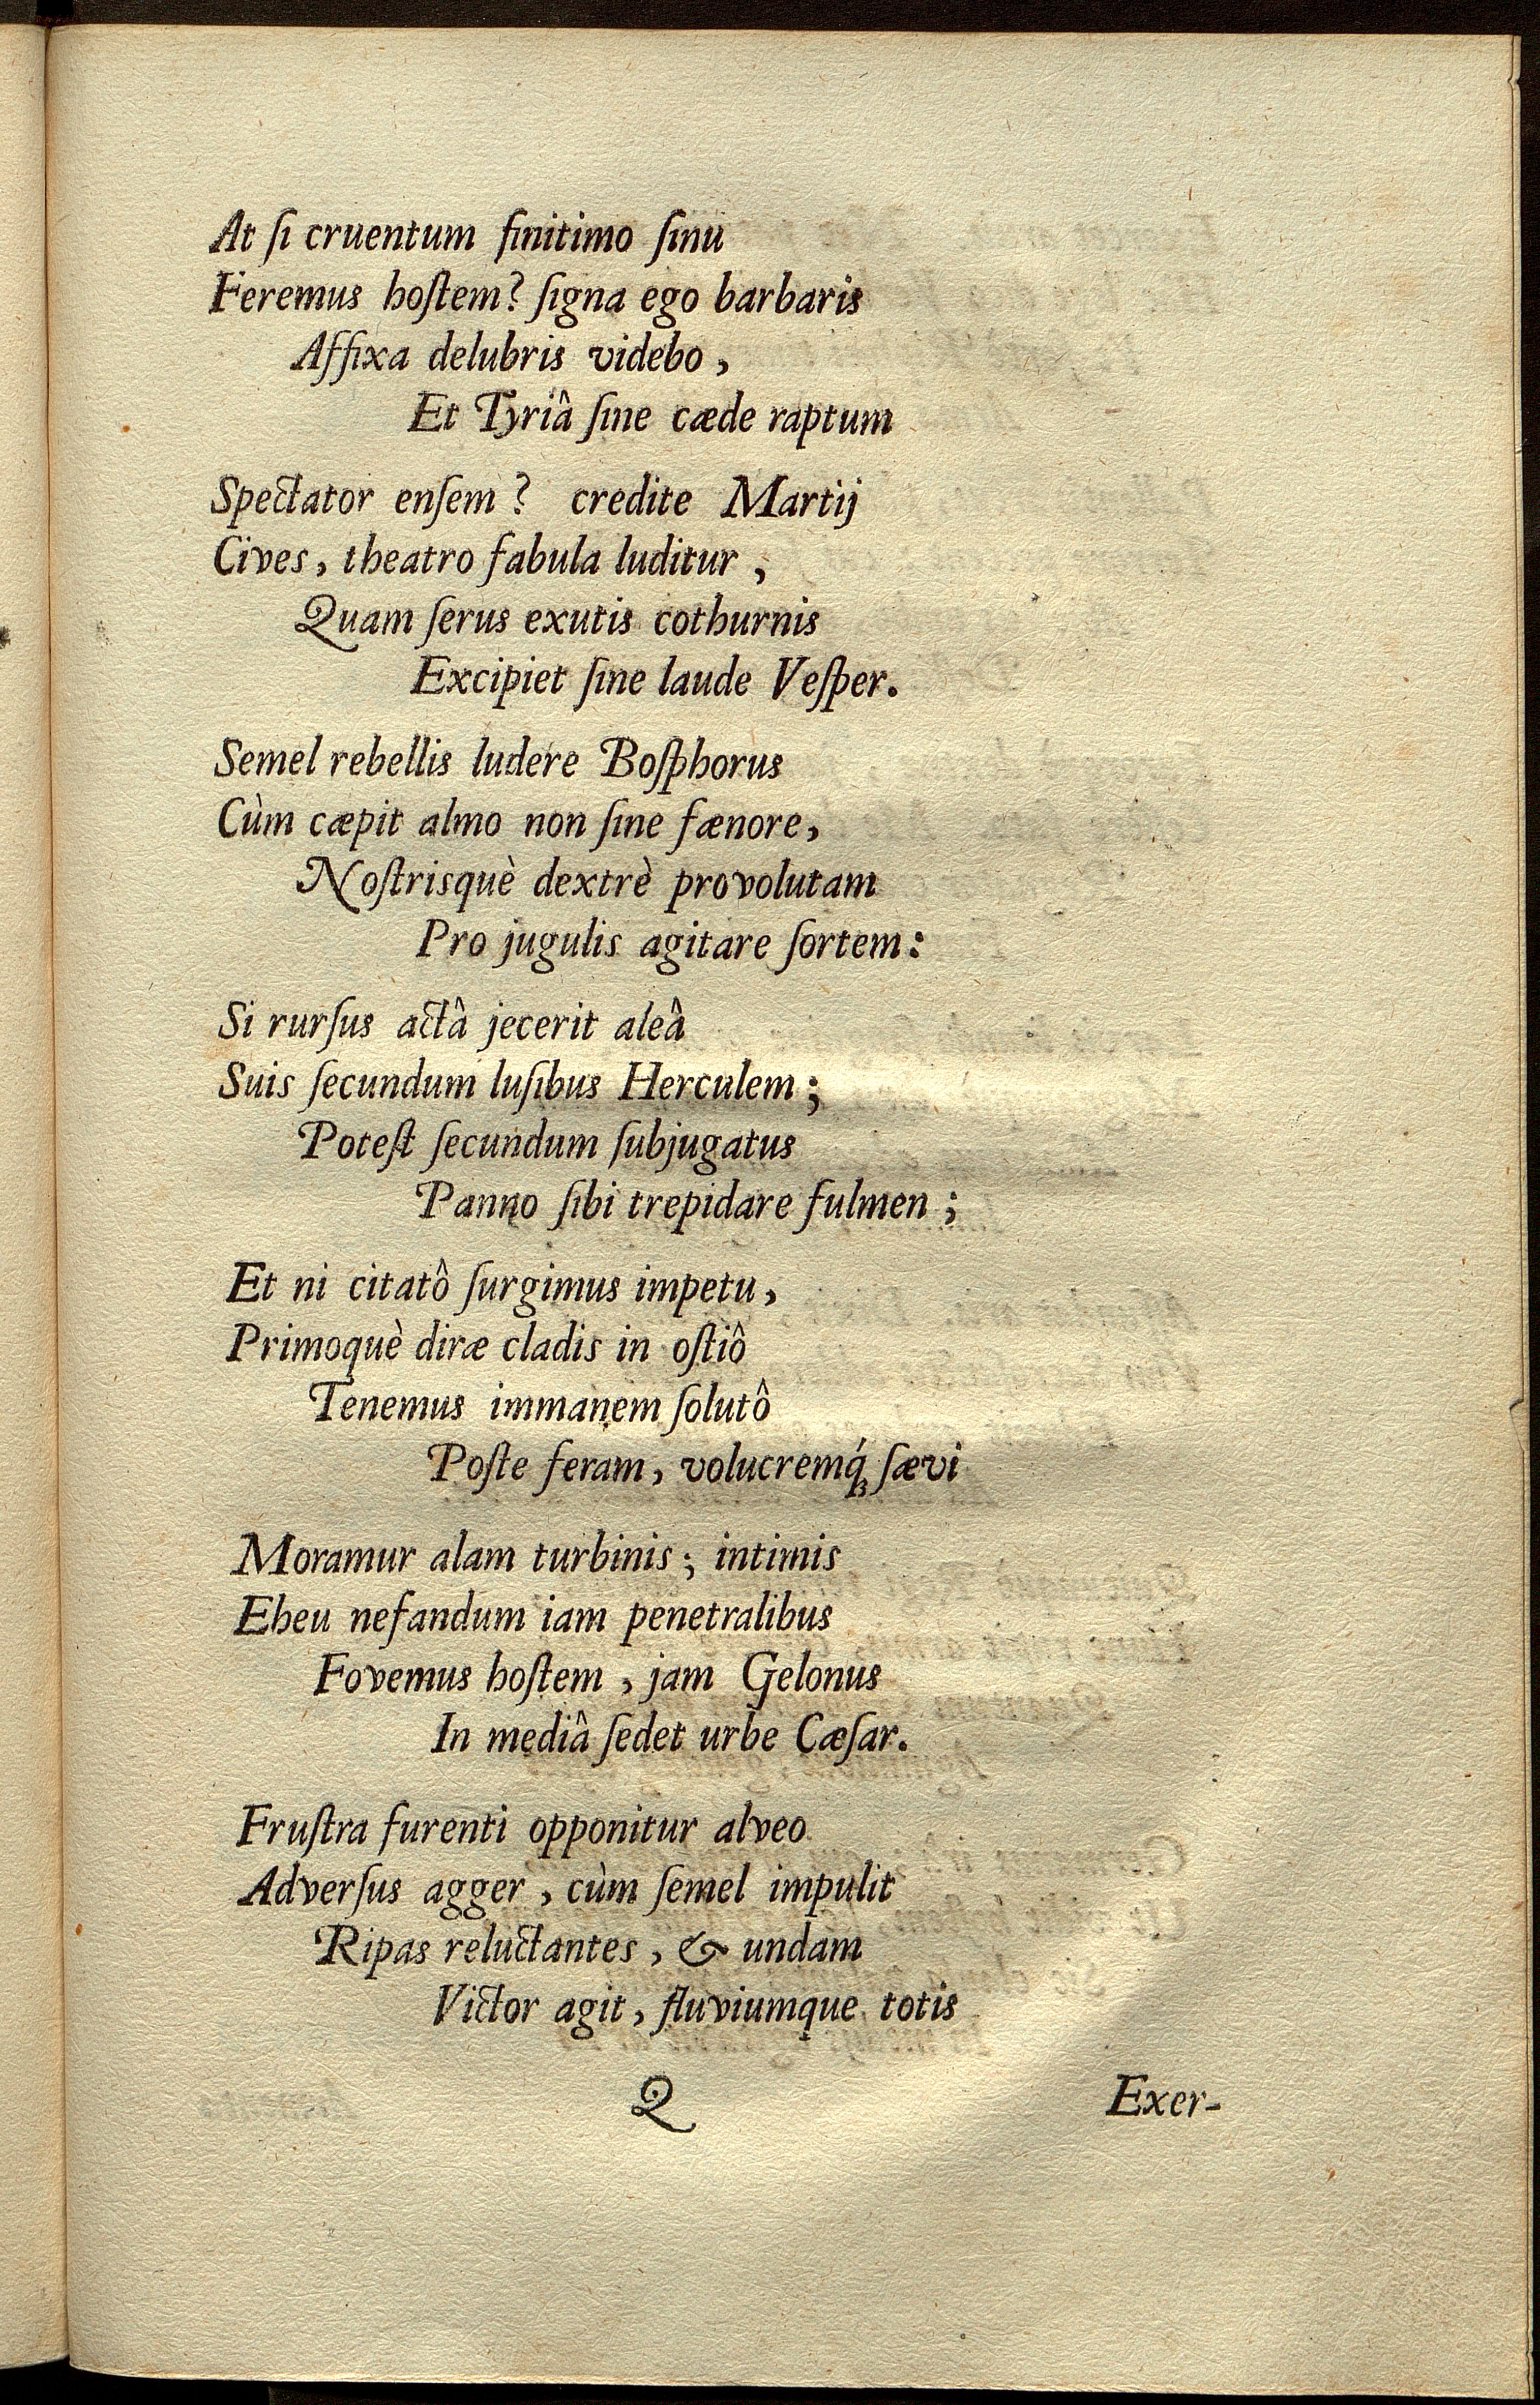 At ſi cruentum finitimo ſinu
Feremus hoſtem? ſigna ego barbaris
Affixa delubris videbo,
Et Tyriâ ſine cæde raptum
Spectator enſem? credite Martij
Cives, theatro fabula luditur,
Quam ſerus exutis cothurnis
Excipiet ſine laude Veſper.
Semel rebellis ludere Boſphorus
Cùm cæpit almo non ſine fænore,
Noſtrisquè dextrè provolutam
Pro jugulis agitare ſortem:
Si rurſus actâ jecerit aleâ
Suis ſecundum luſibus Herculem;
Poteſt ſecundum ſubjugatus
Panno ſibi trepidare fulmen;
Et ni citatô ſurgimus impetu,
Primoquè diræ cladis in oſtiô
Tenemus immanem ſolutô
Poſte feram, volucremq́; ſævi
Moramur alam turbinis; intimis
Eheu nefandum iam penetralibus
Fovemus hoſtem, jam Gelonus
In mediâ ſedet urbe Cæſar.
Fruſtra furenti opponitur alveo
Adverſus agger, cùm ſemel impulit
Ripas reluctantes, & undam
Victor agit, fluviumque totis
Q
Exer-